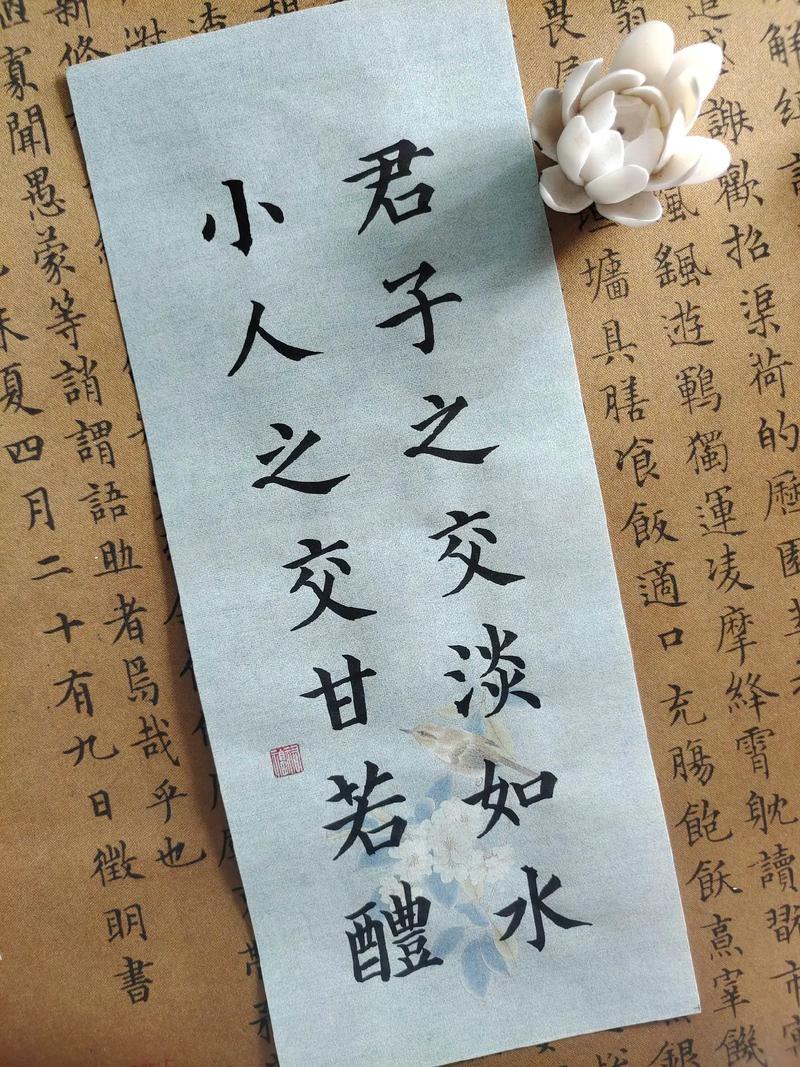 君子之交淡如水
小人之交甘若醴
解組誰
謝歡招渠荷的歷園莽
颻遊鵾獨運凌摩絳霄耽讀翫市
畏
墻具膳飡飯適口充腸飽飫烹宰饑
寡聞愚蒙等誚謂語助者焉哉乎也
未夏四月二十有九日徵明書